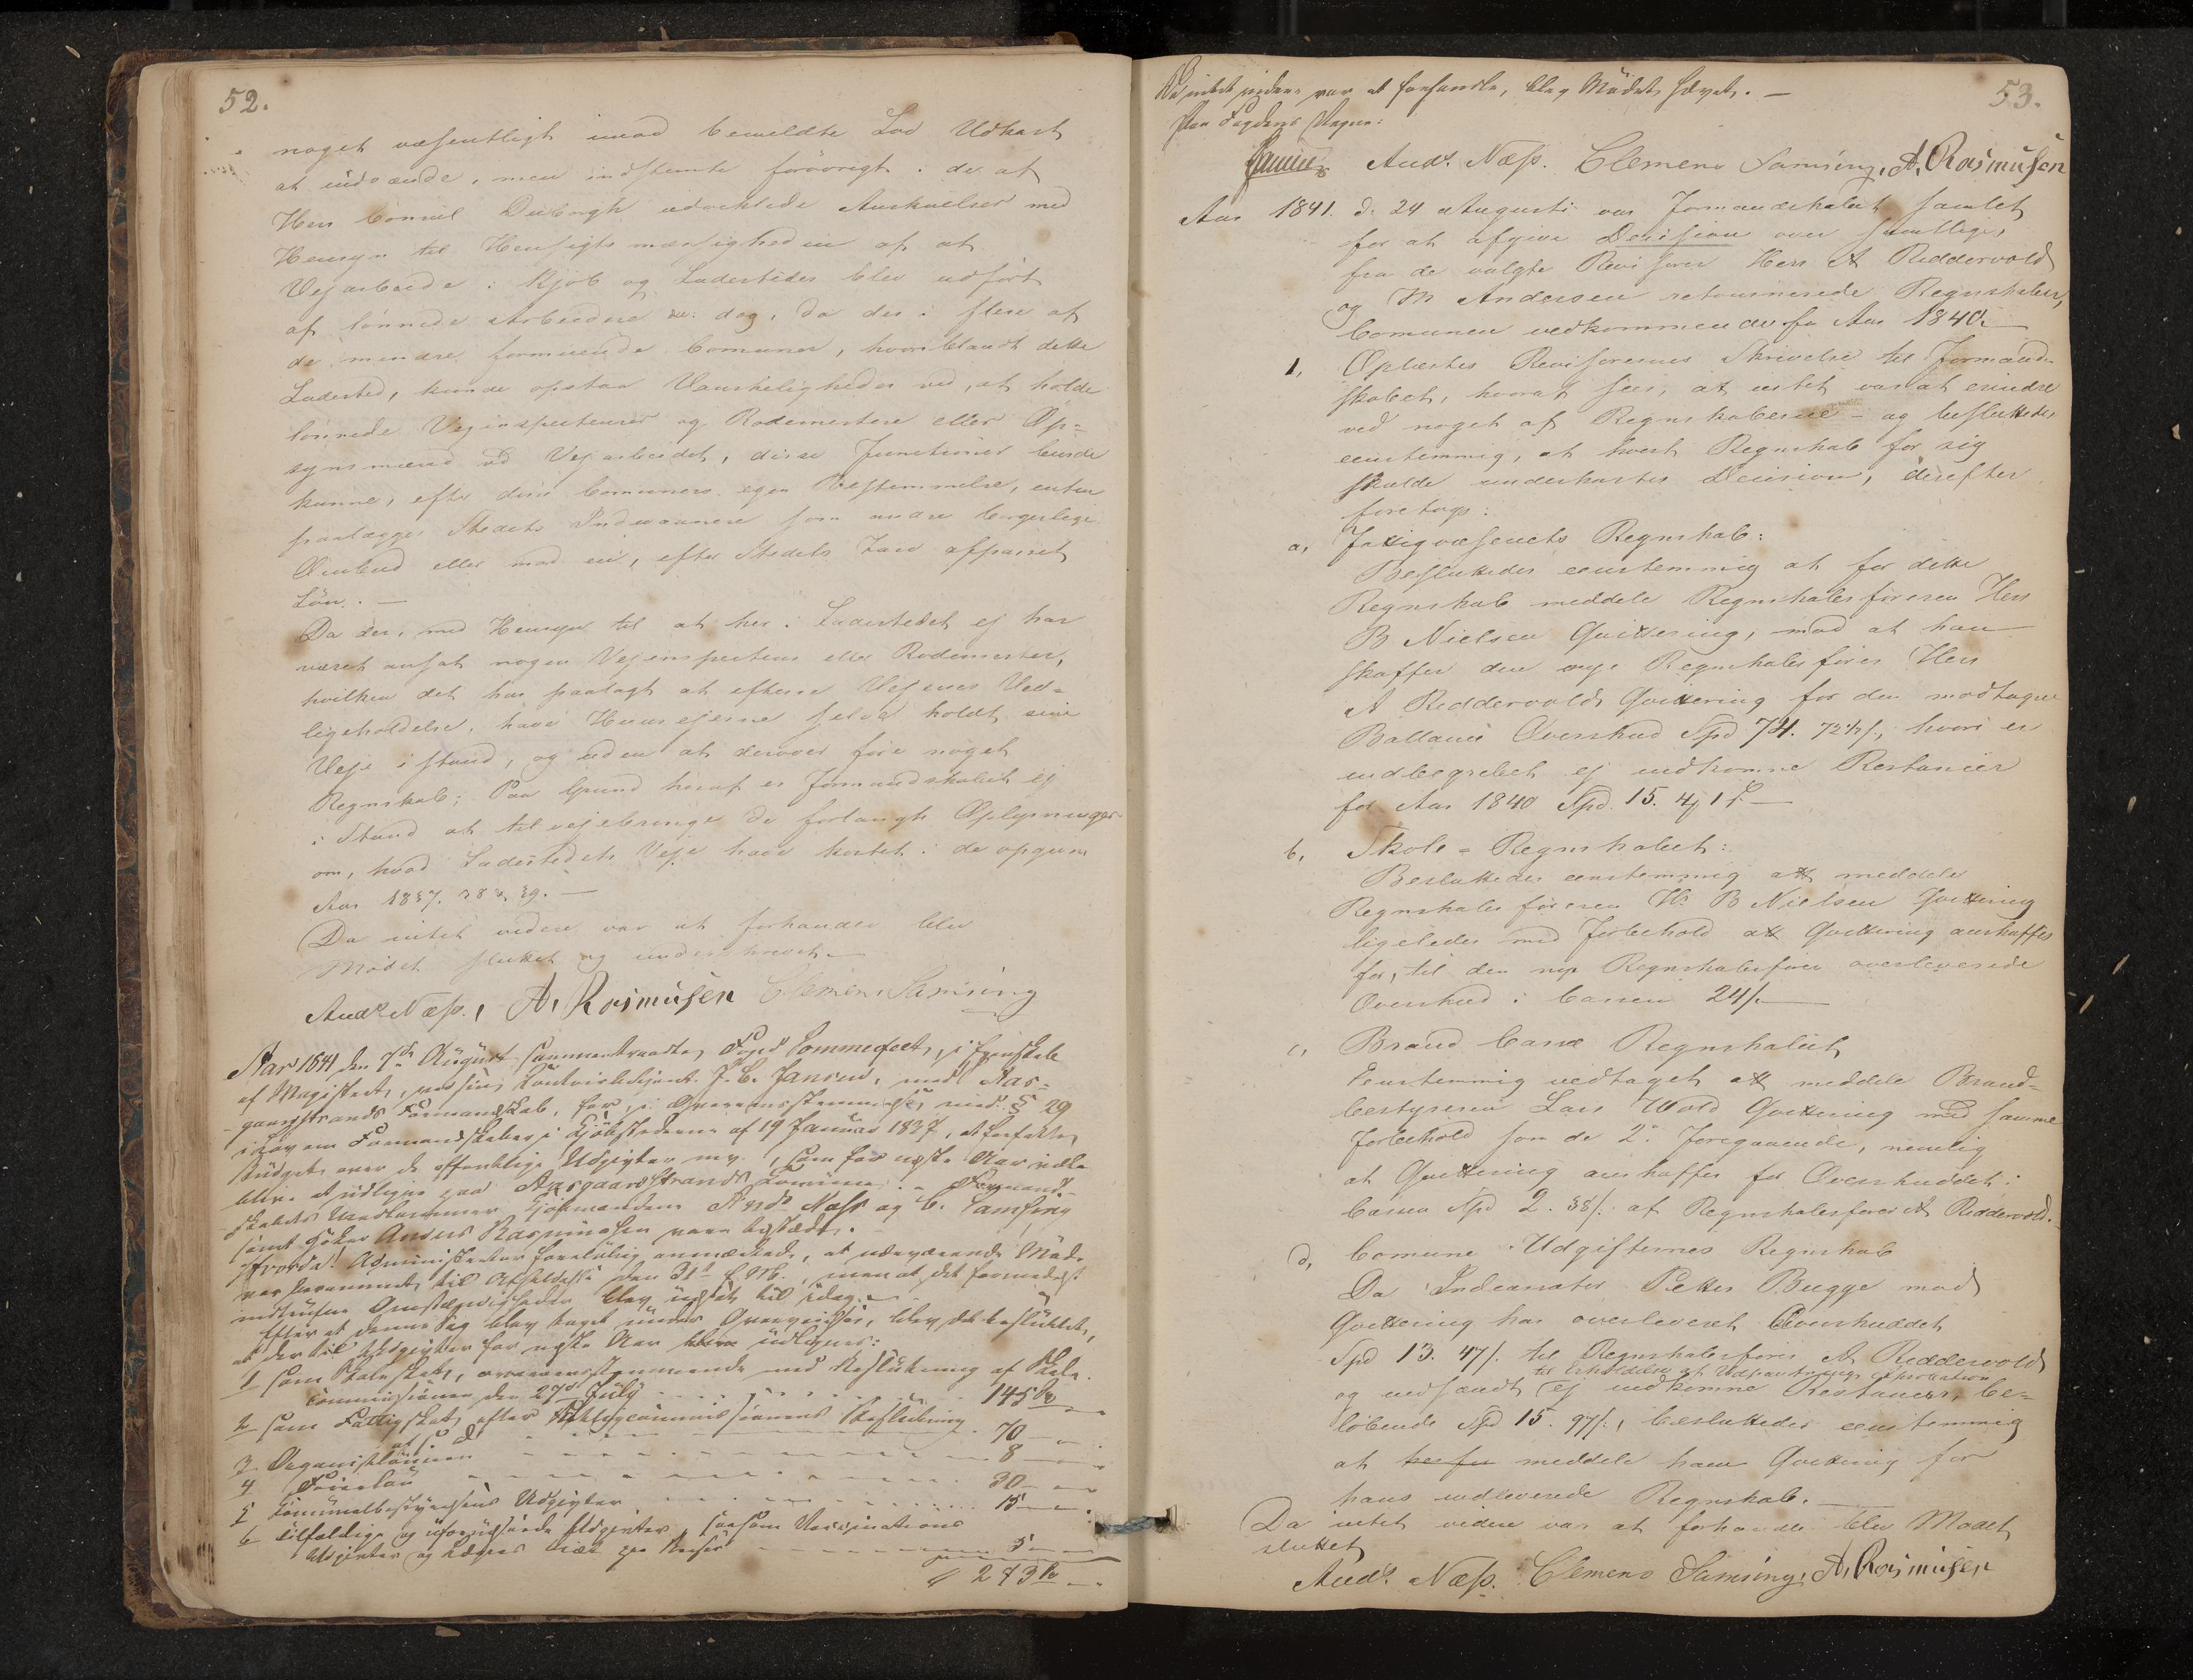 52.
noget væsentligt imod bemeldte Lov Udkast
at indvænde, men indstemte forövrigt i de af
Herr Consul Duborgh udviklede Anskuelser med
Hensyn til Hensigtsmæssigheden af at
Vejarbeide i Kjöb og Ladesteder blev udfört
af lönnede Arbeidere dog, da der i flere af
de mindre formuende Comuner, hvoriblandt dette
Ladested, kunde opstaa Vanskeligheder ved, at holde
lönnede Veginspecteurer og Rodemestere eller Op-
synsmænd ved Vejarbeidet, disse Functioner burde
kunne, efter disse Comuners egen Bestemmelse, enten
paalægges Stedets Indvaanere som andre borgerlige
Ombud eller mod en, efter Stedets Tarv afpasset
Lön. —
Da der, med Hensyn til at her i Ladestedet ej har
været ansat nogen Vejinspecteur eller Rodemester,
hvilken det har paalagt at efterse Vejenes Ved-
ligeholdelse, have Huusejerne selv holdt sine
Veje i stand, og uden at derover före noget
Regnskab; Paa Grund heraf er Formandskabet ej
i Stand at tilvejebringe de forlangte Oplysninger
om, hvad Ladestedets Veje have kostet i de opgivne
Aar 1837. 38 & 39. —
Da intet videre var at forhandle blev
Mödet sluttet og underskrevet. —
Andr Næss. A. Rasmusen Clemens Samsing
Aar 1841 den 7de August sammentraadte Foged Sommerfeldt, i Egenskab
af Magistrat, ved sin Contoirbetjent J. C. Jansen, med Aas-
gaardstrands Formandskab, for, i Overeensstemmelse med § 29
i Lov om Formandskaber i Kjöbstederne af 14 Januar 1837, at forfatte
Budget over de offentlige Udgivter mv., som for næste Aar ville
blive at udligne paa Aasgaardstrands Comune. - Formand-
skabets Medlemmer Kjöbmændene Andr Næss og C. Samsing
samt Höker Anders Rasmussen vare tilstæde. -
Administrator foreløbig anmærkede, at nærværende Möde
var berammet til Afholdelse den 31te f. M., men at det formedelst
indtrufne Omstændigheder blev udsat til idag. -
Efter at denne Sag blev taget under Overveielse, blev det besluttet,
at der til Udgivter for næste Aar blive udlignes:
1 som Skoleskat, overeensstemmende med Beslutning af Skole-
Commissionen den 27de July . . . 145 Spd
2 som Fattigskat, efter Fattigcommissionens Beslutning
af s. D. . . . 70 — "
3 Organistlönnen . . . 8 — "
4 . . . 30 — "
5 Communalbestyrelsens Udgivter . . . 15 — "
6 tilfældige og uforudseede Udgivter, saasom Vaccinations
Udgivter og Lægens . . . 5 — "
273 Spd — "
53.
Da intet videre var at forhandle, blev Mödet hævet. —
Paa Fogdens Vegne:
Jansen Andr. Næss. Clemens Samsing, A. Rasmusen
Aar 1841. d. 24 Augusti var Formandskabet samlet
for at afgive Decision over samtlige,
fra de valgte Revisorer Herr A Riddervold
og M Andersen retournerede Regnskaber,
Comunen vedkommende for Aar 1840. —
1, Oplæstes Revisorernes Skrivelse til Formand-
skabet, hvoraf sees, at intet var at erindre
ved noget af Regnskaberne - og besluttedes
eenstemmig, at hvert Regnskab for sig
skulde underkastes Decision, derefter
foretoges:
a, Fattigvæsenets Regnskab:
Besluttedes eenstemmig at for dette
Regnskab meddele Regnskabsföreren Herr
B Nielsen Qvittering, mod at han
skaffer den nye Regnskabsförer Herr
A Riddervolds Qvittering for den modtagne
Ballance Overskud Spd 74. 72½/, hvori er
indbegrebet ej indkomne Restancer
for Aar 1840 Spd. 15. 4 1 s. —
b, Skole-Regnskabet:
Besluttedes eenstemmig att meddele
Regnskabsföreren Hr. B Nielsen Qvittering
ligeledes med Forbehold att Qvittering anskaffes
for, til den nye Regnskabsförer overleverede
Overskud i Cassen 24/. —
c, Brand Casse Regnskabet,
Eenstemmig vedtaget att meddele Brand-
bestyreren Lars Wold Qvittering med samme
Forbehold som de 2de foregaaende, nemlig
at Qvittering anskaffes for Overskuddet i
Cassen Spd 2. 38/. af Regnskabsförer A Riddervold. -
d, Comune Udgifternes Regnskab
Da Indcassator Petter Bugge mod
Qvittering har overleveret Overskuddet
Spd 13. 47/. til Regnskabsförer A Riddervold
til Erholdelse af Udpantnings Exsecution
og indsændt ej indkomne Restancer, be-
löbende Spd 15. 97/., besluttedes eenstemmig
at herfor meddele ham Qvittering for
hans indleverede Regnskab. —
Da intet videre var at forhandle blev Mödet
sluttet
Andr. Næss. Clemens Samsing, A. Rasmusen